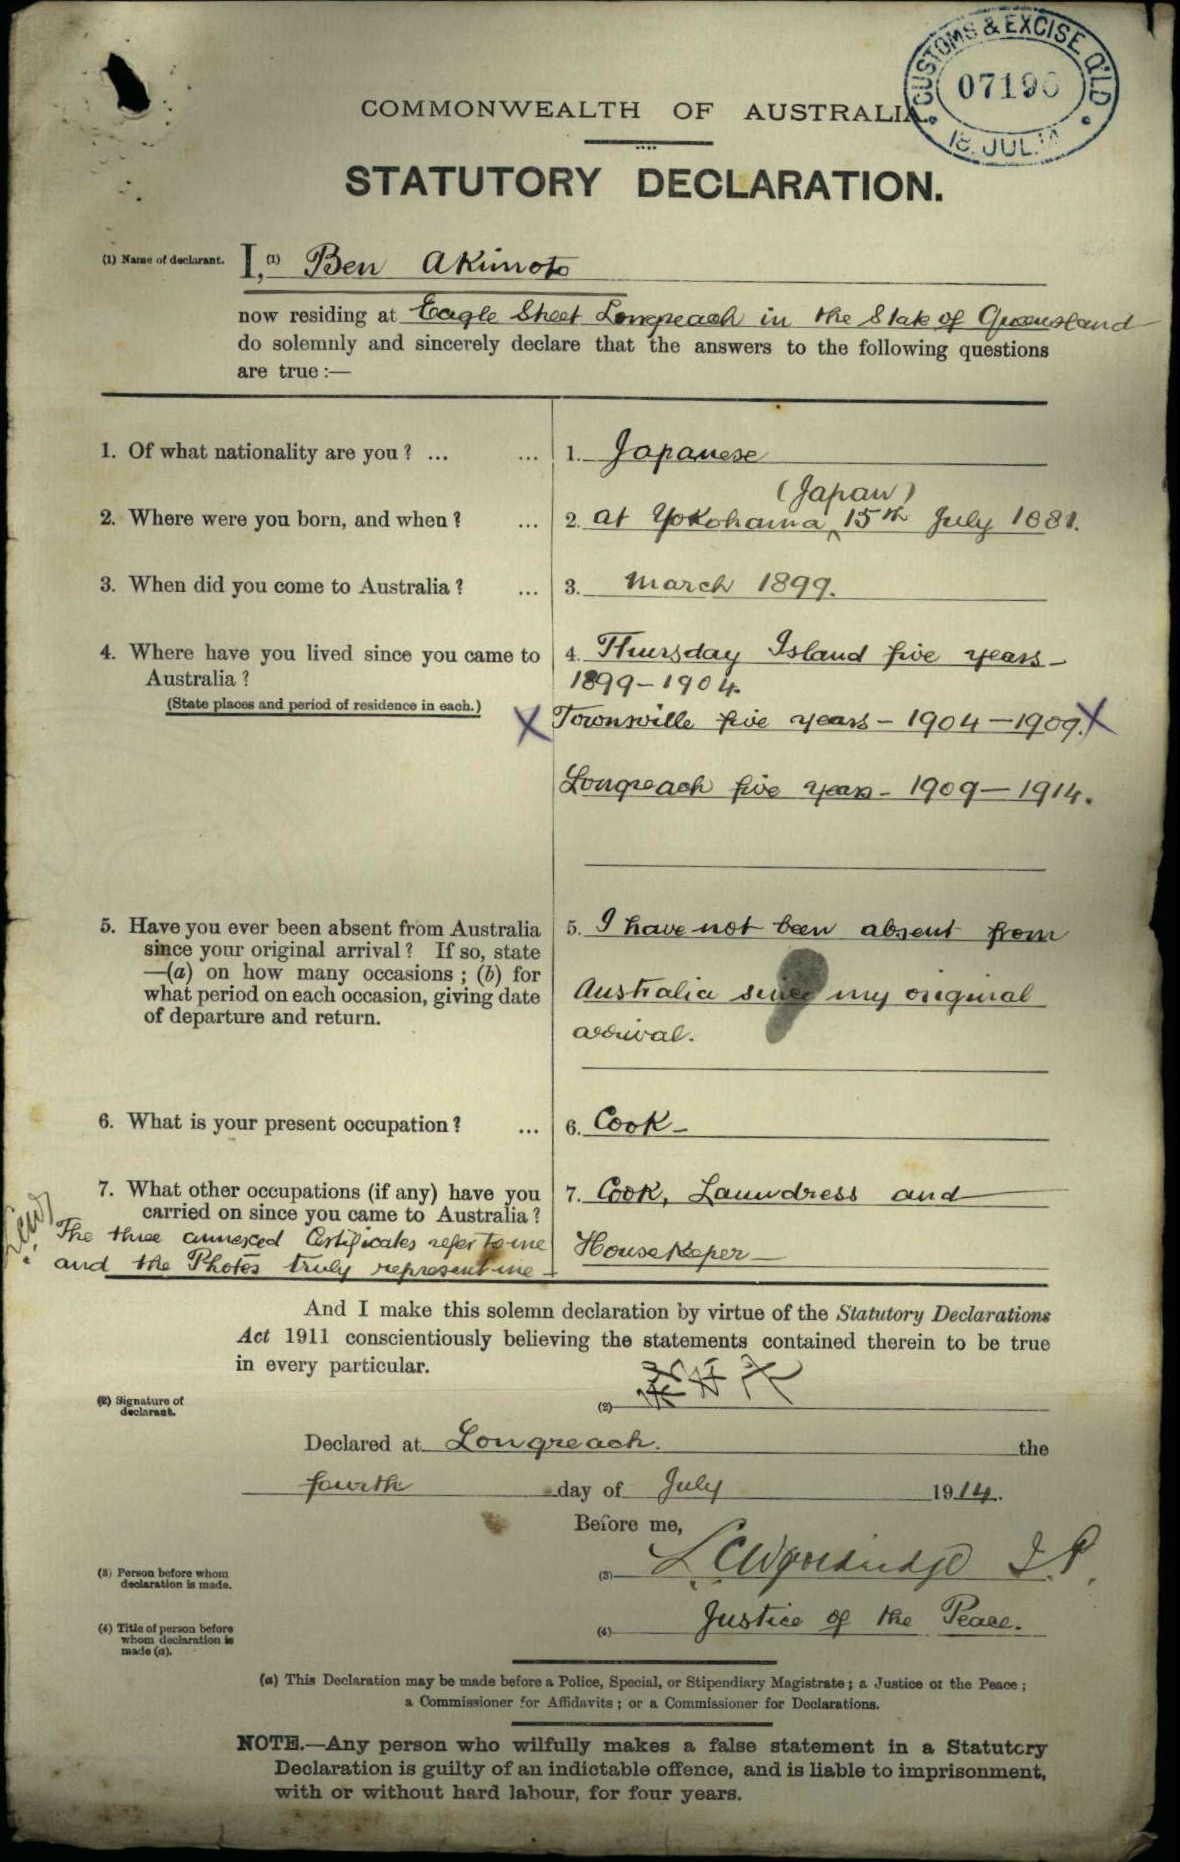 CUSTOMS & EXCISE Q'LD
07190
18. JUL. 14
COMMONWEALTH OF AUSTRALIA.
STATUTORY DECLARATION.
(1) Name of declarant. I, (1) Ben Akimoto
now residing at Eagle Street Longreach in the State of Queensland
do solemnly and sincerely declare that the answers to the following questions
are true :—
1. Of what nationality are you ? ... ... 1. Japanese
(Japan)
2. Where were you born, and when ? ... 2. at Yokohama ^ 15th July 1881.
3. When did you come to Australia ? ... 3. March 1899.
4. Where have you lived since you came to 4. Thursday Island five years —
Australia ? 1899 – 1904.
(State places and period of residence in each.) X Townsville five years – 1904 – 1909. X
Longreach five years – 1909 – 1914.
5. Have you ever been absent from Australia 5. I have not been absent from
since your original arrival ? If so, state
—(a) on how many occasions ; (b) for
what period on each occasion, giving date Australia since my original
of departure and return. arrival.
6. What is your present occupation ? ... 6. Cook –
7. What other occupations (if any) have you 7. Cook, Laundress and
carried on since you came to Australia ?
The three annexed Certificates refer to me Housekeper —
and the Photos truly represent me –
And I make this solemn declaration by virtue of the Statutory Declarations
Act 1911 conscientiously believing the statements contained therein to be true
in every particular.
(2) Signature of
declarant. (2)
Declared at Longreach. the
fourth day of July 1914.
Before me,
(3) Person before whom
declaration is made. (3) J.P.
(4) Title of person before
whom declaration is
made (a). (4) Justice of the Peace.
(a) This Declaration may be made before a Police, Special, or Stipendiary Magistrate ; a Justice of the Peace ;
a Commissioner for Affidavits ; or a Commissioner for Declarations.
NOTE.—Any person who wilfully makes a false statement in a Statutory
Declaration is guilty of an indictable offence, and is liable to imprisonment,
with or without hard labour, for four years.